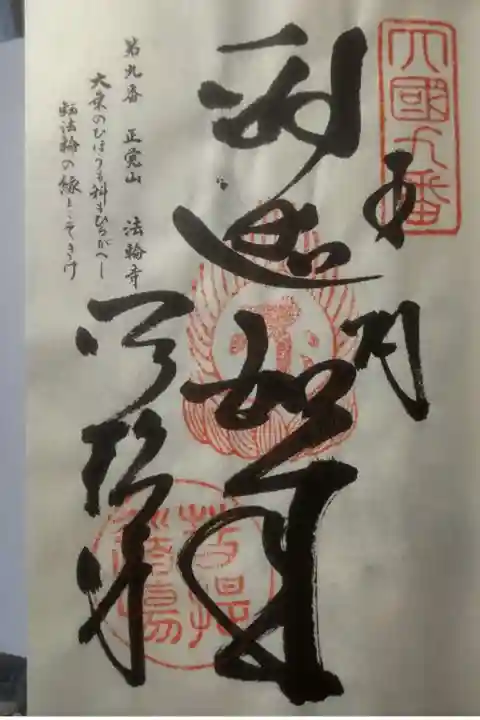 四國九番
奉
納
釈迦如来
法輪寺
第九番 正覚山 法輪寺
大乗のひほうも科もひるがへし
転法輪の縁とこそきけ
菩提道場